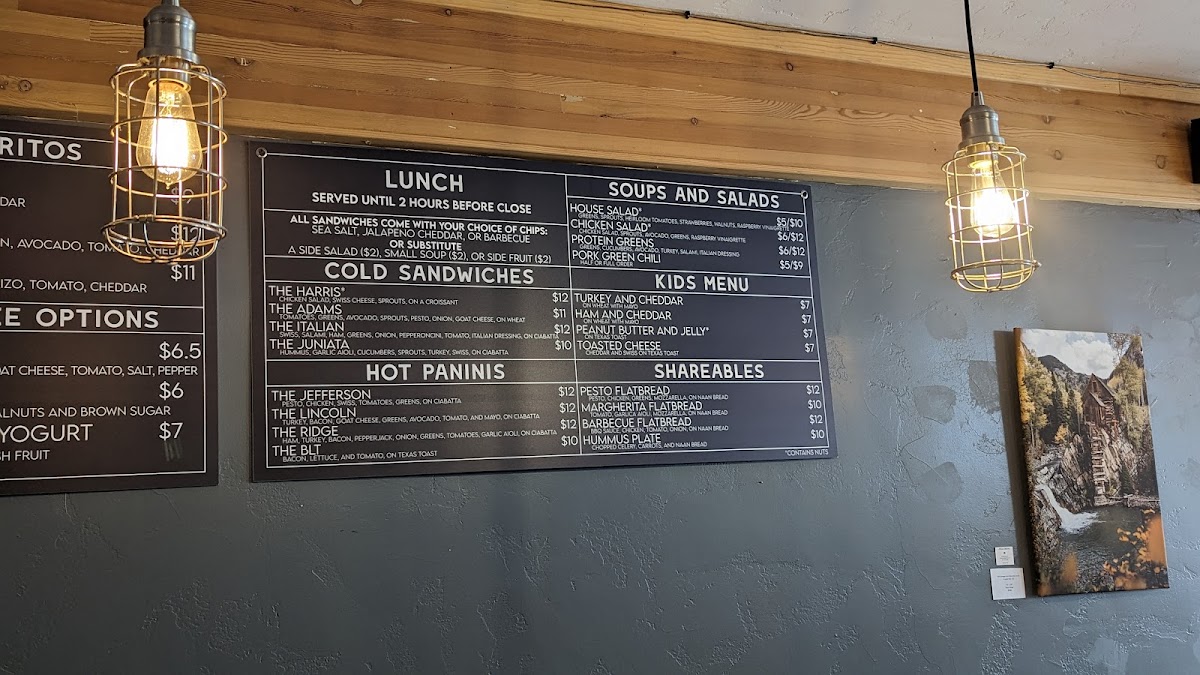 RITOS
DAR
$12
N, AVOCADO, TOMATO, CHEDDAR
$11
IZO, TOMATO, CHEDDAR
EE OPTIONS
$6.5
OAT CHEESE, TOMATO, SALT, PEPPER
$6
ALNUTS AND BROWN SUGAR
YOGURT $7
SH FRUIT
LUNCH
SERVED UNTIL 2 HOURS BEFORE CLOSE
ALL SANDWICHES COME WITH YOUR CHOICE OF CHIPS:
SEA SALT, JALAPENO CHEDDAR, OR BARBECUE
OR SUBSTITUTE
A SIDE SALAD ($2), SMALL SOUP ($2), OR SIDE FRUIT ($2)
COLD SANDWICHES
THE HARRIS* $12
CHICKEN SALAD, SWISS CHEESE, SPROUTS, ON A CROISSANT
THE ADAMS $11
TOMATOES, GREENS, AVOCADO, SPROUTS, PESTO, ONION, GOAT CHEESE, ON WHEAT
THE ITALIAN $12
SWISS, SALAMI, HAM, GREENS, ONION, PEPPERONCINI, TOMATO, ITALIAN DRESSING, ON CIABATTA
THE JUNIATA $10
HUMMUS, GARLIC AIOLI, CUCUMBERS, SPROUTS, TURKEY, SWISS, ON CIABATTA
HOT PANINIS
THE JEFFERSON $12
PESTO, CHICKEN, SWISS, TOMATOES, GREENS, ON CIABATTA
THE LINCOLN $12
TURKEY, BACON, GOAT CHEESE, GREENS, AVOCADO, TOMATO, AND MAYO, ON CIABATTA
THE RIDGE $12
HAM, TURKEY, BACON, PEPPERJACK, ONION, GREENS, TOMATOES, GARLIC AIOLI, ON CIABATTA
THE BLT $10
BACON, LETTUCE, AND TOMATO, ON TEXAS TOAST
SOUPS AND SALADS
HOUSE SALAD* $5/$10
GREENS, SPROUTS, HEIRLOOM TOMATOES, STRANBERRIES, WALNUTS, RASPBERRY VINAIGRETTE
CHICKEN SALAD* $6/$12
CHICKEN SALAD, SPROUTS, AVOCADO, GREENS, RASPBERRY VINAIGRETTE
PROTEIN GREENS $6/$12
GREENS, CUCUMBERS, AVOCADO, TURKEY, SALAMI, ITALIAN DRESSING
PORK GREEN CHILI $5/$9
HALF OR FULL ORDER
KIDS MENU
TURKEY AND CHEDDAR $7
ON WHEAT WITH MAYO
HAM AND CHEDDAR $7
ON WHEAT WITH MAYO
PEANUT BUTTER AND JELLY* $7
ON TEXAS TOAST
TOASTED CHEESE $7
CHEDDAR AND SWISS ON TEXAS TOAST
SHAREABLES
PESTO FLATBREAD $12
PESTO, CHICKEN, GREENS, MOZZARELLA, ON NAAN BREAD
MARGHERITA FLATBREAD $10
TOMATO, GARLIC AIOLI, MOZZARELLA, ON NAAN BREAD
BARBECUE FLATBREAD $12
BBQ SAUCE, CHICKEN, TOMATO, ONION, ON NAAN BREAD
HUMMUS PLATE $10
CHOPPED CELERY, CARROTS, AND NAAN BREAD
*CONTAINS NUTS